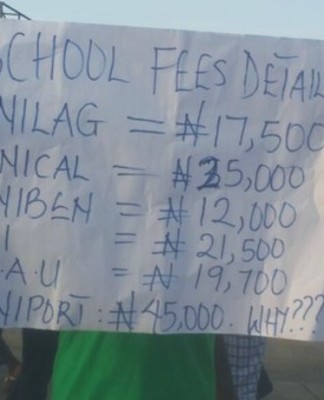 SCHOOL FEES DETAIL
NILAG = ₦17,500
NICAL = ₦35,000
NIBEN = ₦12,000
I = ₦21,500
.A.U = ₦19,700
NIPORT: ₦45,000. WHY???